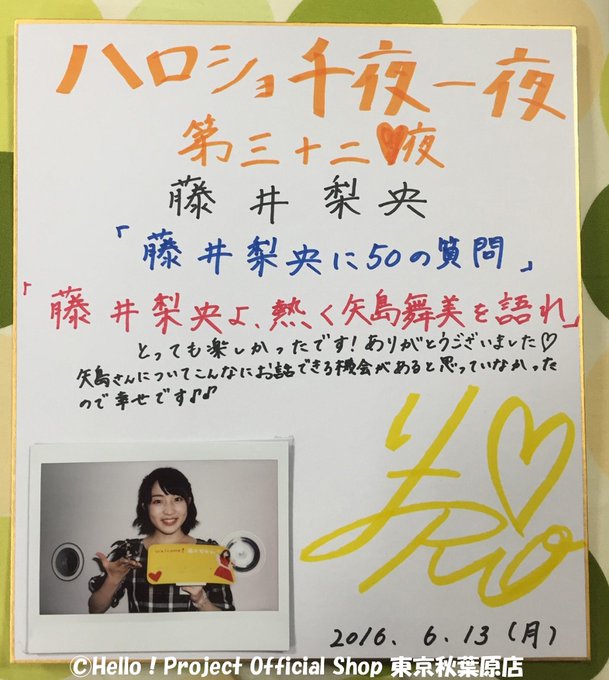 ハロショ千夜一夜
第三十二♥夜
藤井梨央
「藤井梨央に50の質問」
「藤井梨央よ、熱く矢島舞美を語れ」
とっても楽しかったです!ありがとうございました♡
矢島さんについてこんなにお話できる機会があると思っていなかった
ので幸せです♪♪
Welcome!
2016. 6. 13 (月)
©Hello! Project Official Shop 東京秋葉原店